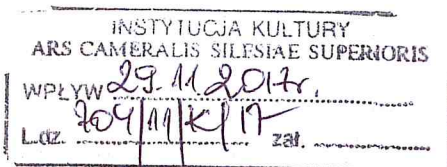 INSTYTUCJA KULTURY
ARS CAMERALIS SILESIAE SUPERIORIS
WPŁYW 29.11.2017r.
L.dz. 704/11/K/17 zał.